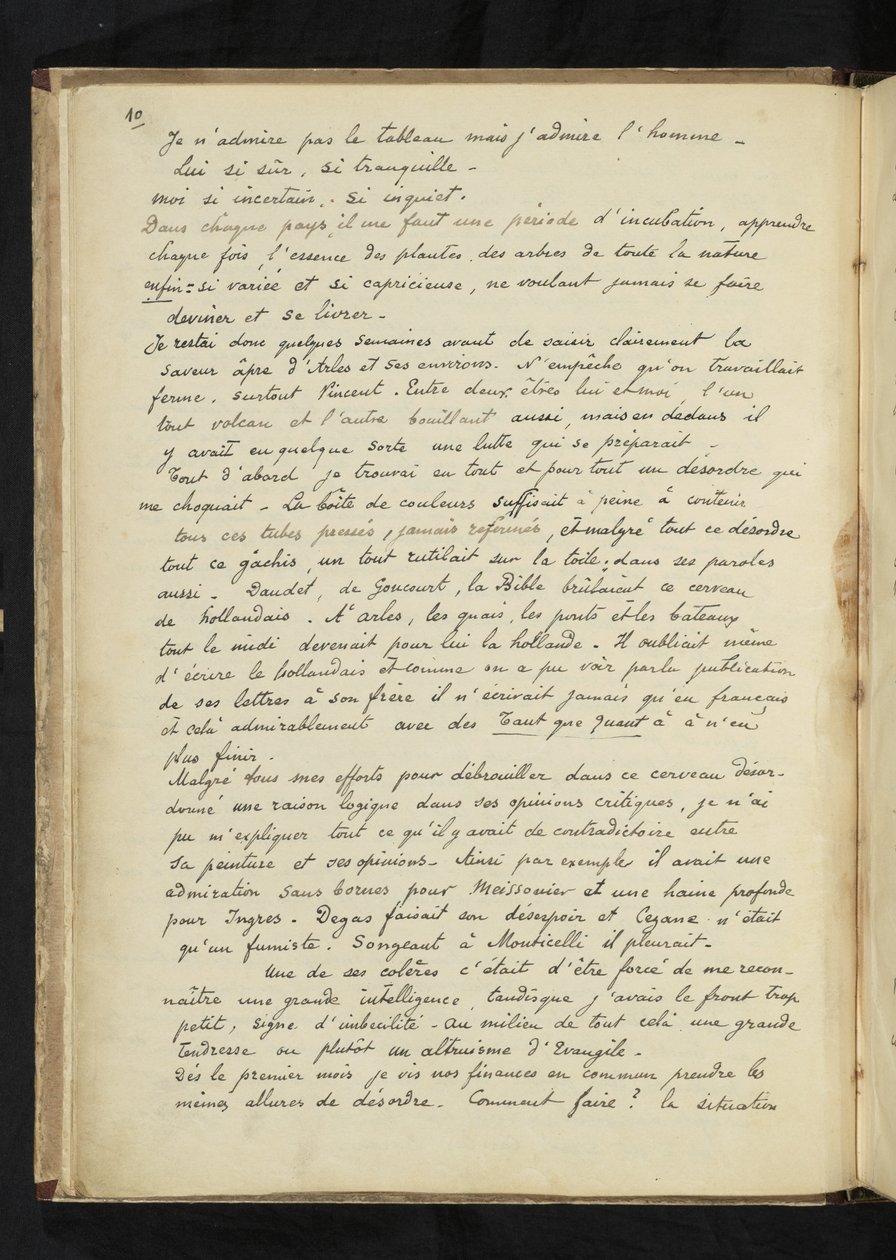 10
Je n'admire pas le tableau mais j'admire l'homme –
Lui si sûr, si tranquille –
moi si incertain, si inquiet.
Dans chaque pays, il me faut une période d'incubation, apprendre
chaque fois, l'essence des plantes, des arbres de toute la nature
enfin = si variée et si capricieuse, ne voulant jamais se faire
deviner et se livrer –
Je restai donc quelques semaines avant de saisir clairement la
saveur âpre d'Arles et ses environs. N'empêche qu'on travaillait
ferme, surtout Vincent. Entre deux êtres lui et moi, l'un
tout volcan et l'autre bouillant aussi, mais en dedans il
y avait en quelque sorte une lutte qui se préparait –
Tout d'abord je trouvai en tout et pour tout un désordre qui
me choquait – La boîte de couleurs suffisait à peine à contenir
tous ces tubes pressés, jamais refermés, et malgré tout ce désordre
tout ce gâchis, un tout rutilait sur la toile; dans ses paroles
aussi – Daudet, de Goncourt, la Bible brûlaient ce cerveau
de hollandais. A arles, les quais, les ponts et les bateaux
tout le midi devenait pour lui la hollande. Il oubliait même
d'écrire le hollandais et comme on a pu voir par la publication
de ses lettres à son frère il n'écrivait jamais qu'en français
et celà admirablement avec des Tant que Quant à à n'en
plus finir.
Malgré tous mes efforts pour débrouiller dans ce cerveau désor-
donné une raison logique dans ses opinions critiques, je n'ai
pu m'expliquer tout ce qu'il y avait de contradictoire entre
sa peinture et ses opinions – Ainsi par exemple il avait une
admiration sans bornes pour Meissonier et une haine profonde
pour Ingres – Degas faisait son désespoir et Cezane n'était
qu'un fumiste. Songeant à Monticelli il pleurait –
Une de ses colères c'était d'être forcé de me recon-
naître une grande intelligence, tandisque j'avais le front trop
petit, signe d'imbecilité – Au milieu de tout celà une grande
Tendresse ou plutôt un altruisme d'Evangile –
Dés le premier mois je vis nos finances en commun prendre les
mêmes allures de désordre – Comment faire ? la situation